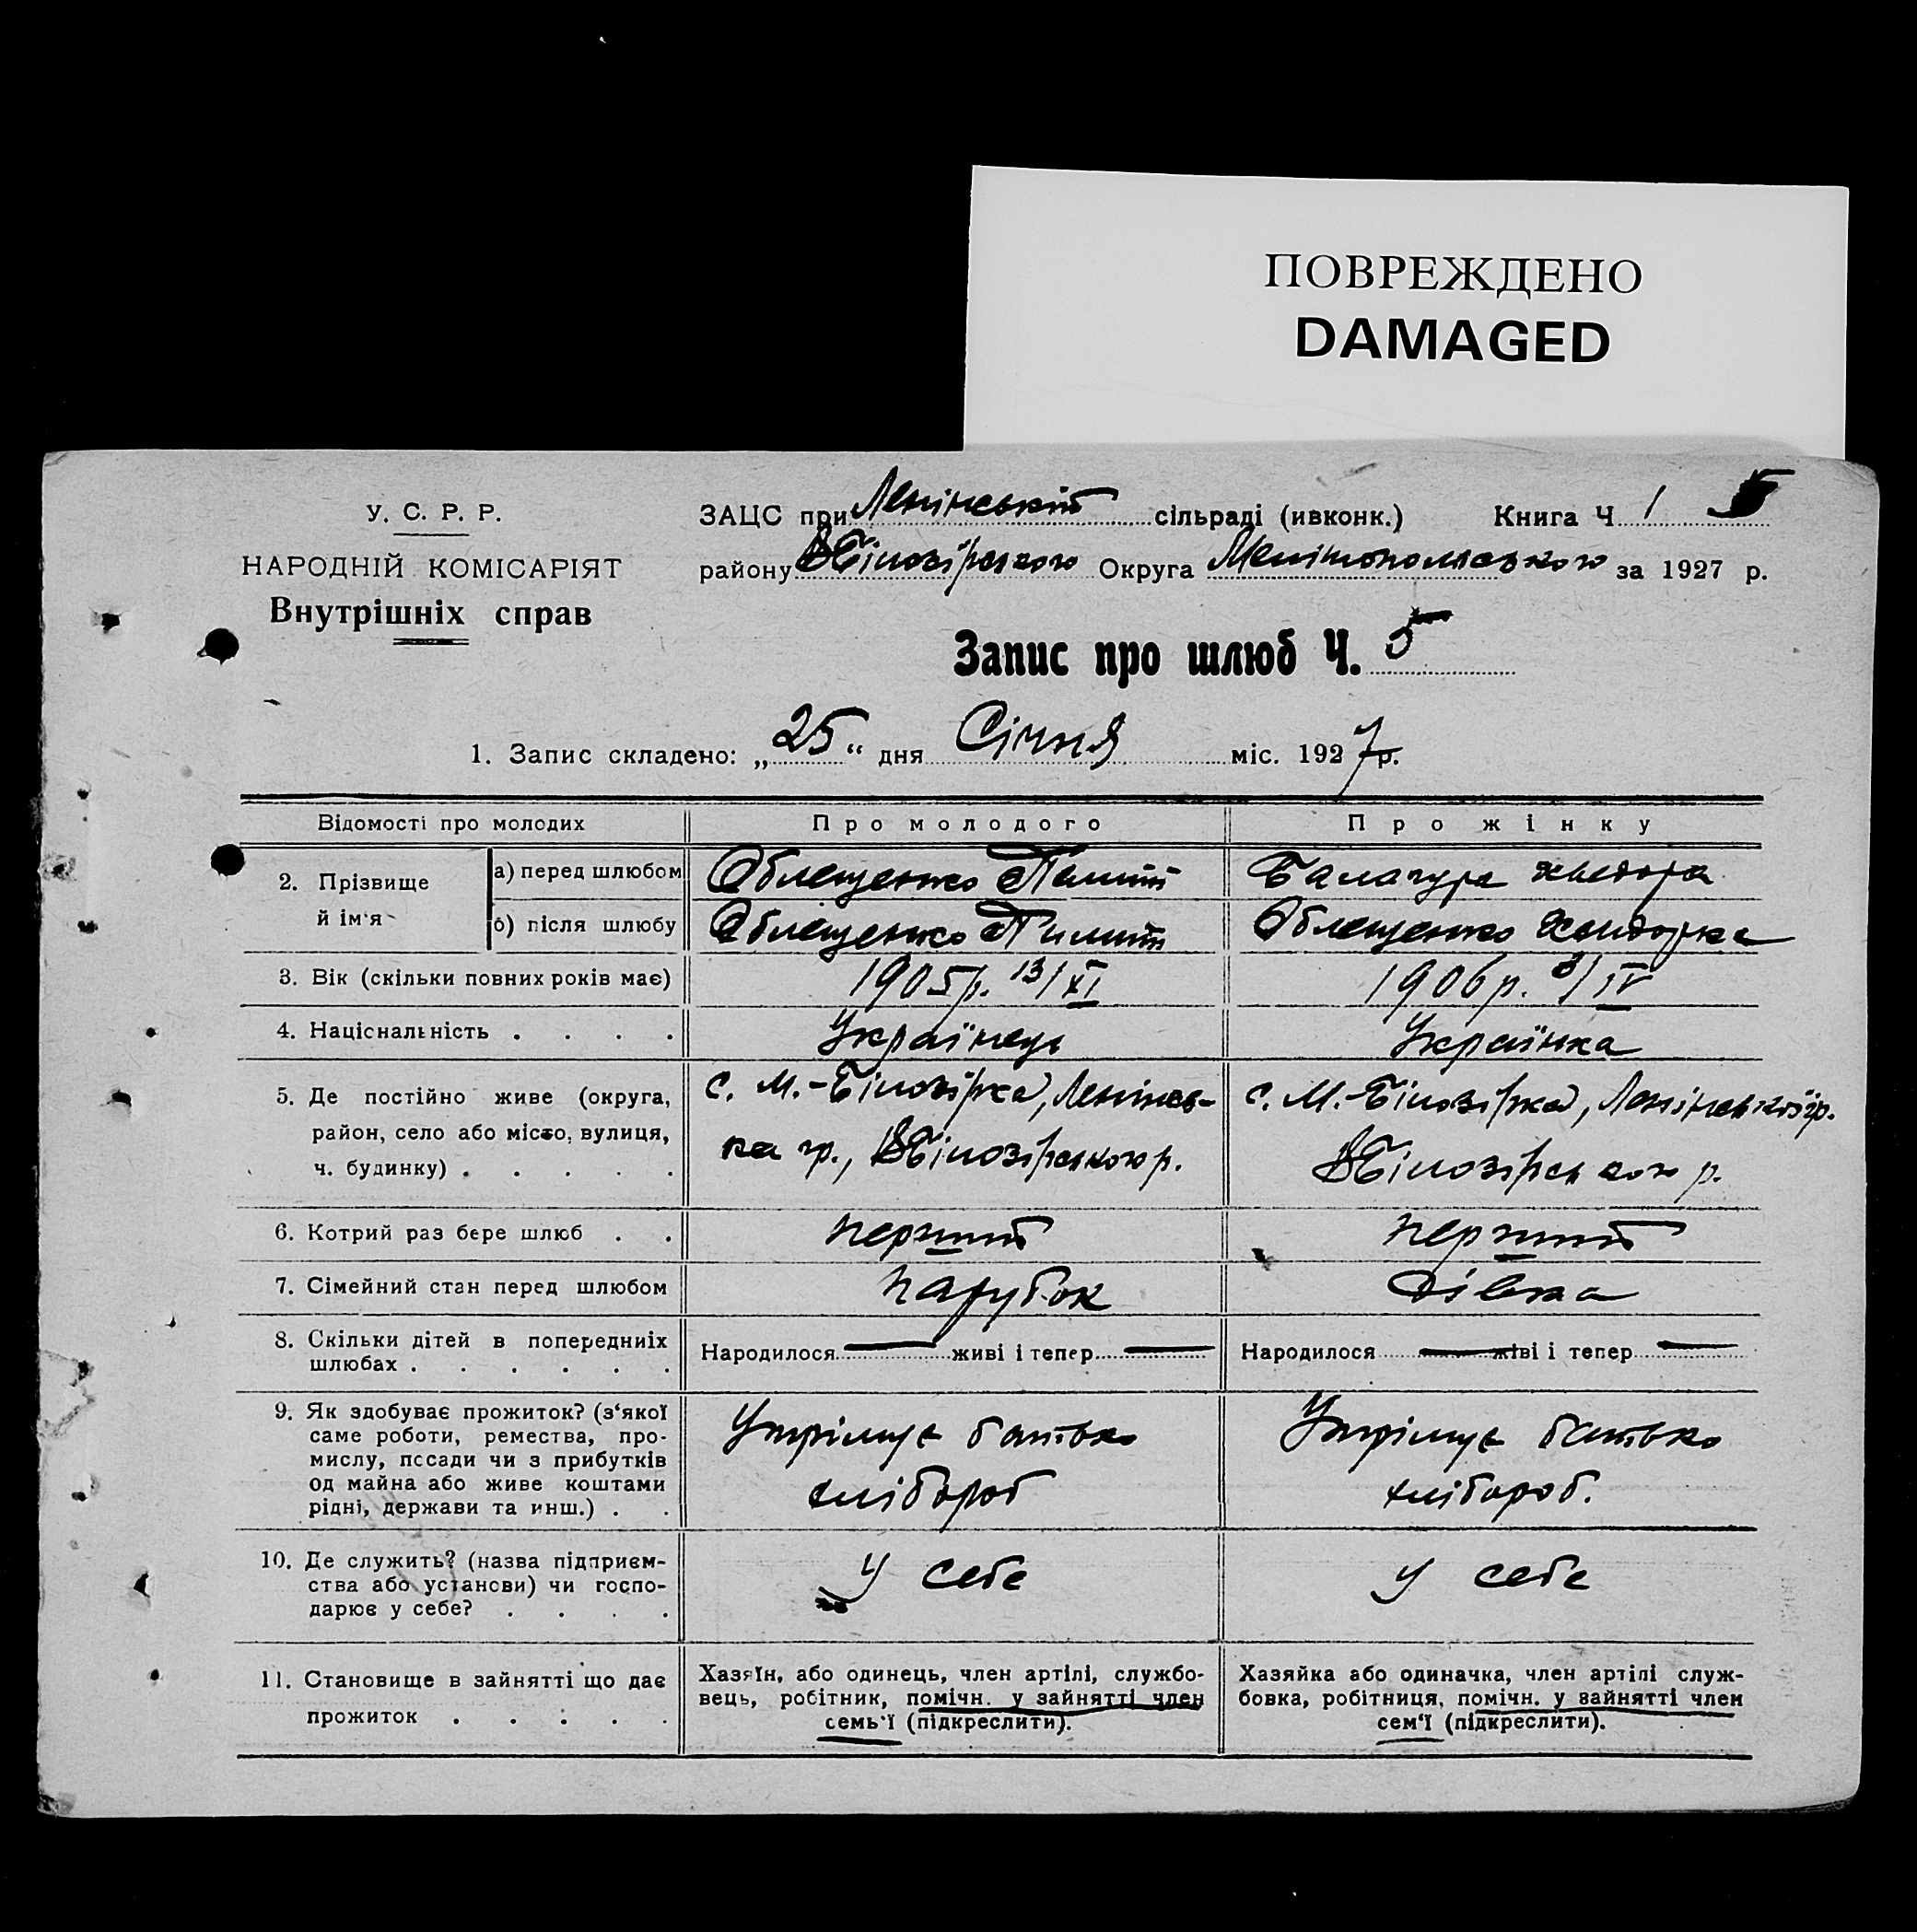 ПОВРЕЖДЕНО
DAMAGED
У. С. Р. Р.
НАРОДНІЙ КОМІСАРІЯТ
Внутрішніх справ
ЗАЦС при Ленінській сільраді (ивконк.) Книга Ч 1
району ВБілозірського Округа Мелітопольського за 1927 р.
Запис про шлюб Ч. 5
1. Запис складено: „25“ дня Січня міс. 1927 р.
Відомості про молодих Про молодого Про жінку
2. Прізвище й ім'я
а) перед шлюбом Облещенко Пилип Балагура Хведора
б) після шлюбу Облещенко Пилип Облещенко
3. Вік (скільки повних років має) 1905 р. 13/XI 1906 р. 3/IV
4. Національність . . . . Українець Українка
5. Де постійно живе (округа, с. М.-Білозірка, Ленінсь- с. М.-Білозірка, Ленінської гр.
район, село або місто, вулиця, ка гр., ВБілозірського р. ВБілозірського р.
ч. будинку) . . . . .
6. Котрий раз бере шлюб . . перший перший
7. Сімейний стан перед шлюбом парубок дівка
8. Скільки дітей в попередниіх Народилося живі і тепер Народилося живі і тепер
шлюбах . . . . . .
9. Як здобуває прожиток? (з'якої Утрімує батько Утрімує батько
саме роботи, ремества, про- хлібороб хлібороб.
мислу, посади чи з прибутків
од майна або живе коштами
рідні, держави та инш.) . .
10. Де служить? (назва підприєм- у себе у себе
ства або установи) чи госпо-
дарює у себе? . . . .
11. Становище в зайнятті що дає Хазяїн, або одинець, член артілі, службо- Хазяйка або одиначка, член артілі служ-
прожиток . . . . . вець, робітник, помічн. у зайнятті член бовка, робітниця, помічн. у зайнятті член
семь'ї (підкреслити). сем'ї (підкреслити).